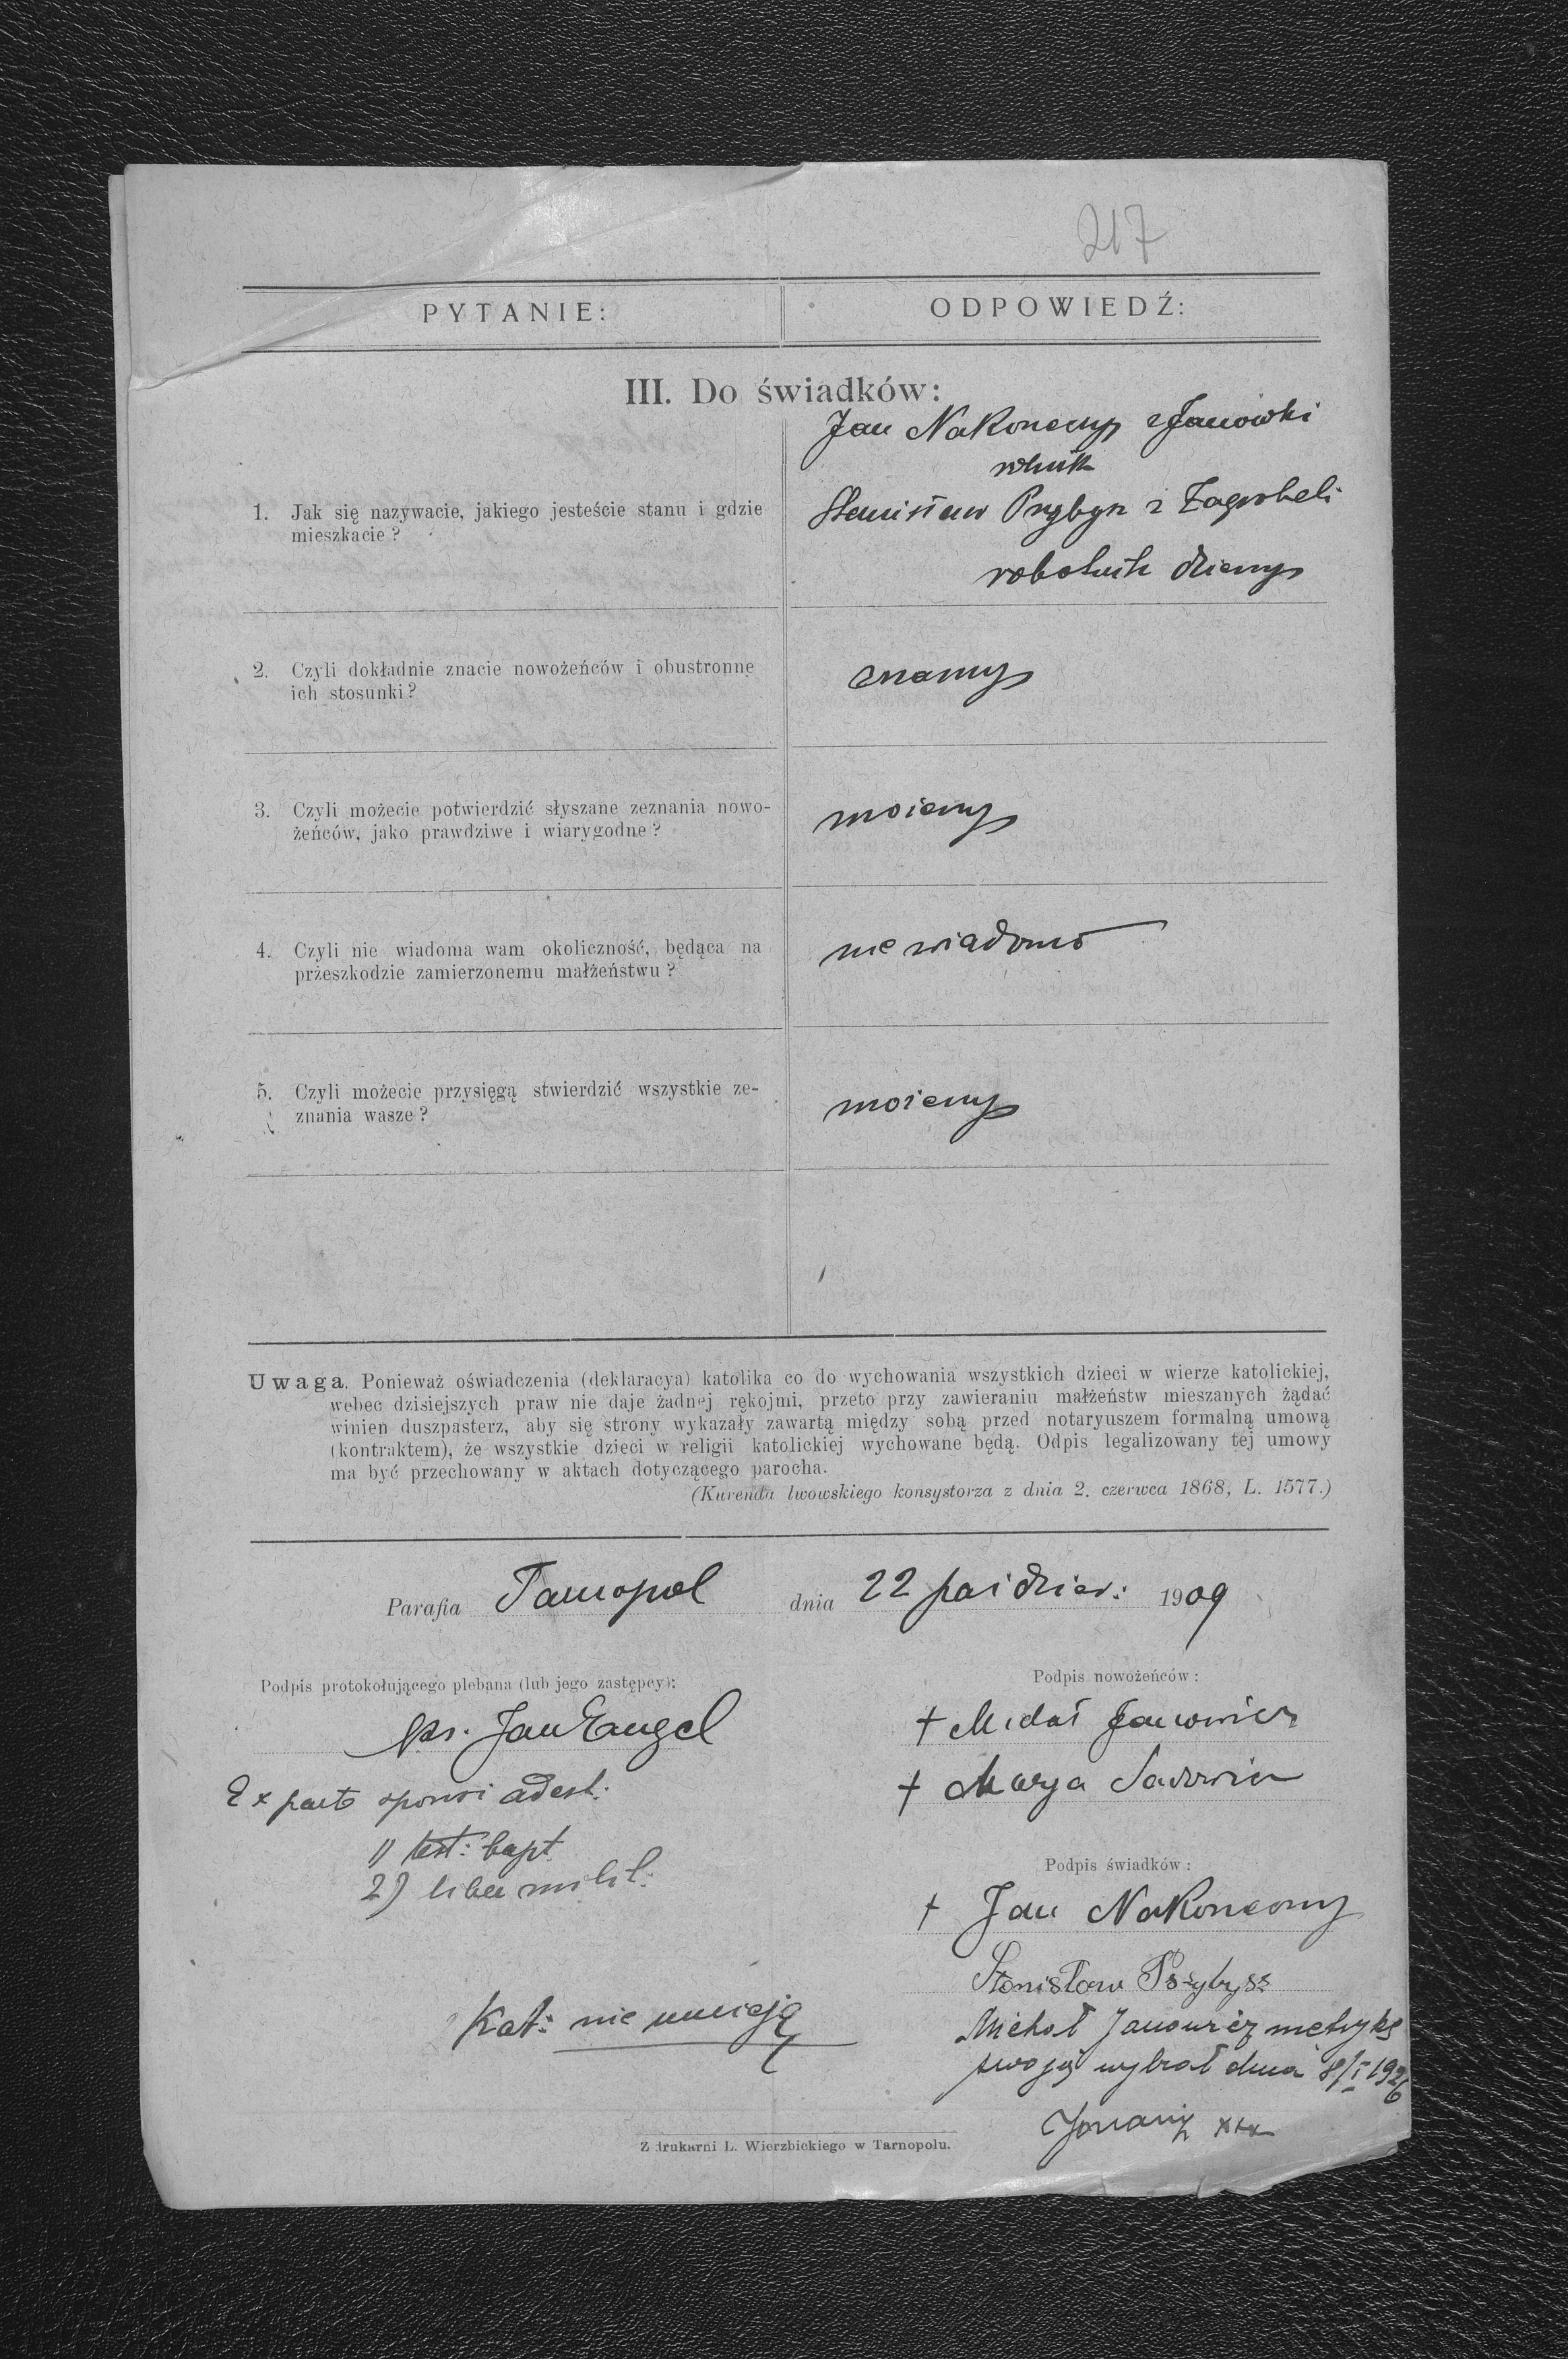 217
PYTANIE:
ODPOWIEDŹ:
III. Do świadków:
Jan Nakoneczny z Janówki
rolnik
1. Jak się nazywacie, jakiego jesteście stanu i gdzie
mieszkacie?
Stanisław Przybysz z Zagrobeli
robotnik dzienny
2. Czyli dokładnie znacie nowożeńców i obustronne
ich stosunki?
znamy
3. Czyli możecie potwierdzić słyszane zeznania nowo-
żeńców, jako prawdziwe i wiarygodne?
możemy
4. Czyli nie wiadoma wam okoliczność, będąca na
przeszkodzie zamierzonemu małżeństwu?
nie wiadomo
5. Czyli możecie przysięgą stwierdzić wszystkie ze-
znania wasze?
możemy
Uwaga. Ponieważ oświadczenia (deklaracya) katolika co do wychowania wszystkich dzieci w wierze katolickiej,
wobec dzisiejszych praw nie daje żadnej rękojmi, przeto przy zawieraniu małżeństw mieszanych żądać
winien duszpasterz, aby się strony wykazały zawartą między sobą przed notaryuszem formalną umową
(kontraktem), że wszystkie dzieci w religii katolickiej wychowane będą. Odpis legalizowany tej umowy
ma być przechowany w aktach dotyczącego parocha.
(Kurenda lwowskiego konsystorza z dnia 2. czerwca 1868, L. 1577.)
Parafia Tarnopol dnia 22 paździer: 1909
Podpis protokołującego plebana (lub jego zastępcy):
ks. Jan Engel
Ex parte sponsi adest:
1) test: bapt.
2) liber milit:
Kat: nie umieją
Podpis nowożeńców:
† Michał Janowicz
† Marya
Podpis świadków:
† Jan Nakoneczny
Stanisław Pszybysz
Michał Janowicz metrykę
swoją wybrał dnia 8/I 1926
xxx
Z drukarni L. Wierzbickiego w Tarnopolu.